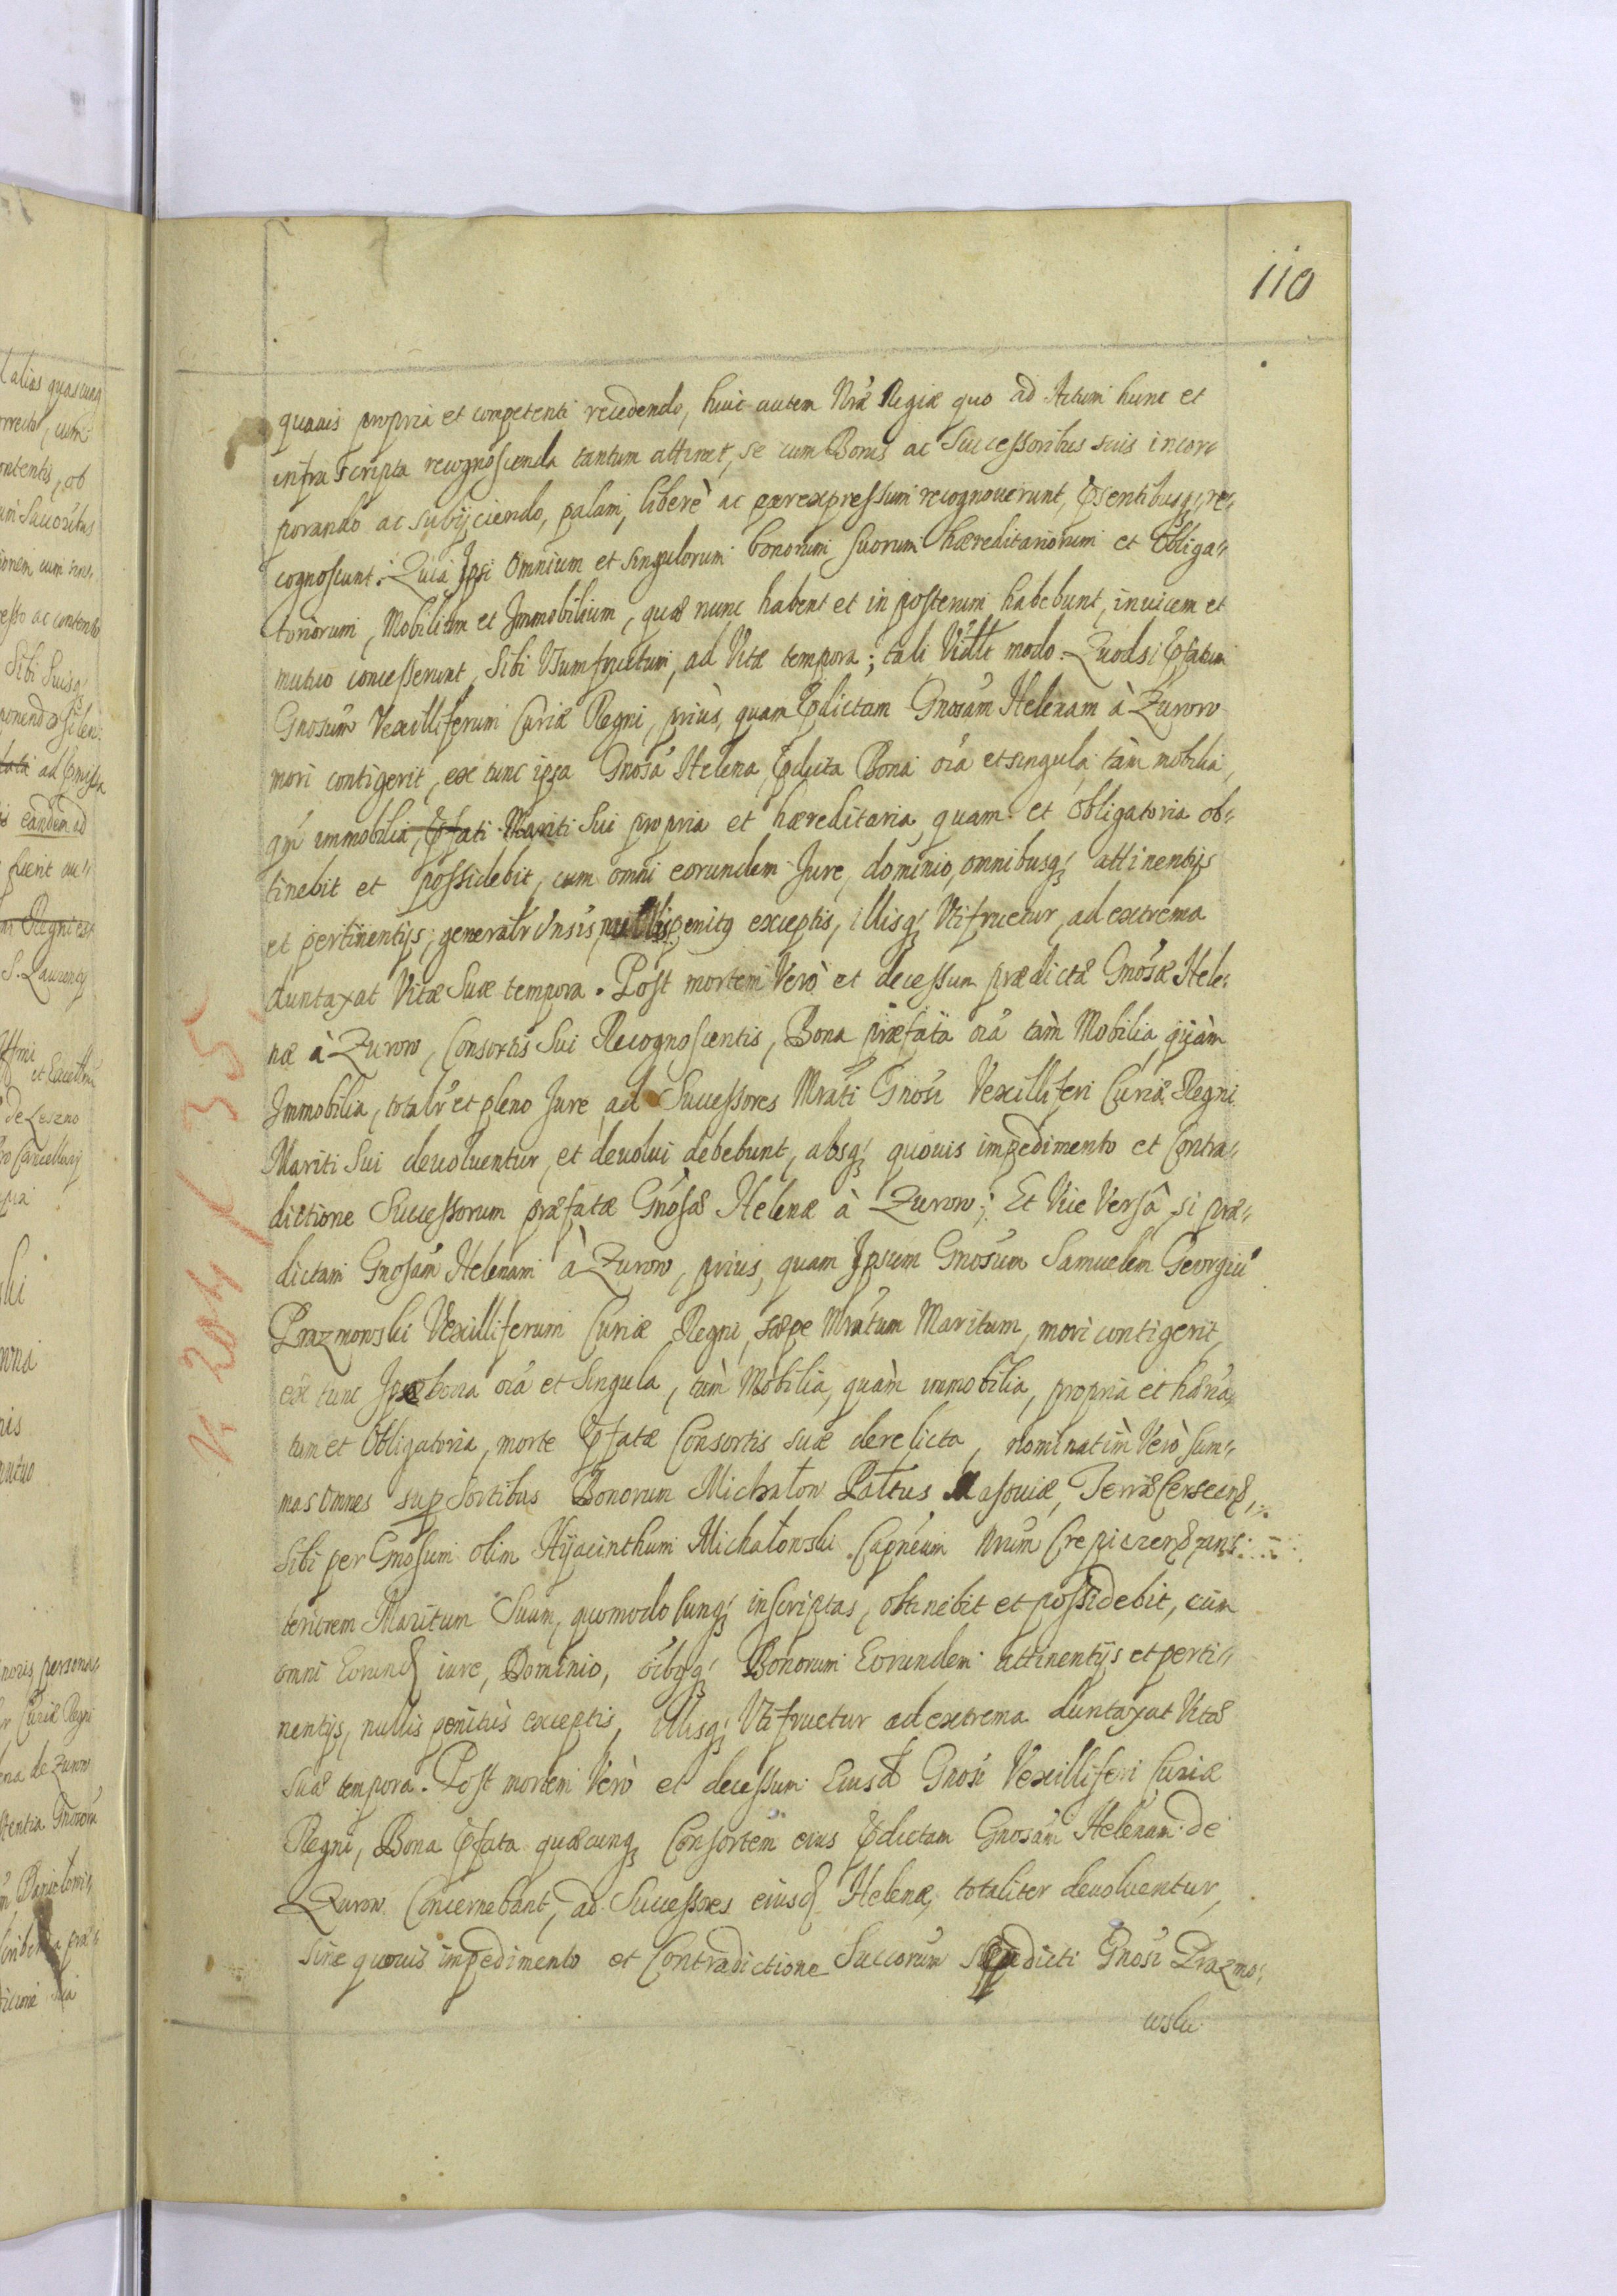 110
quauis propria et competenti recedendo, huic autem Nrae Regiae quo ad Actum hunc et
infra scripta recognoscenda tantum attinet, se cum Bonis ac Successoribus suis incor-
porando ac subijciendo, palam, liberè ac per expressum recognouerunt, Psentibusq; re-
cognoscunt. Quia Ipsi Omnium et singulorum bonorum suorum haereditariorum et Obliga-
toriorum, Mobilium et Immobilium, quae nunc habent et in posterum habebunt, inuicem et
mutuo concesserunt, Sibi Vsumfructum, ad Vitae tempora; tali Vidlt modo. Quodsi Pfatum
Gnosum Vexilliferum Curiae Regni, priùs, quam Pdictam Gnosam Helenam à Zurow
mori contigerit, ex tunc ipsa Gnosa Helena, Pdicta Bona oia et singula, tàm mobilia,
qm immobilia, Pfati Mariti Sui propria et haereditaria, quam et obligatoria ob-
tinebit et possidebit, cum omni eorundem Jure, dominio, omnibusq; attinentijs
et pertinentijs, generalr Vnsis nullis penitq exceptis, illisq; Vtifruetur, ad extrema
duntaxat Vitae Suae tempora. Post mortem Verò et decessum praedictae Gnosae Hele-
nae à Zurow, Consortis Sui Recognoscentis, Bona praefata oia tàm Mobilia, quàm
Immobilia, totalr et pleno Jure ad Successores Mrati Gnosi Vexilliferi Curiae Regni
Mariti Sui deuoluentur, et deuolui debebunt, absq; quouis impedimento et Contra-
dictione Successorum praefatae Gnosae Helenae à Zurow; Et Vice Versâ si prae-
dictam Gnosam Helenam à Zurow, prius, quam Ipsum Gnosum Samuelem Georgiu
Prazmowski Vexilliferum Curiae Regni, saepe Mratum Maritum, mori contigerit,
ex tunc Ipse bona oia et Singula, tàm Mobilia, quàm immobilia, propria et
tum et Obligatoria, morte Pfatae Consortis suae derelicta, nominatìm Verò sum-
mas omnes sup Sortibus Bonorum Michałow Pałtus Masouiae, Terrae
Sibi per Gnosum olim Hyjacinthum Michałowski Capneum Nrum
teriorem Maritum Suum, quomodocunq; inscriptas, obtinebit et possidebit, cum
omni Eorund iure, Dominio, oibqq; Bonorum Eorundem attinentijs et perti-
nentijs, nullis penitùs exceptis, illisq; Vtifruetur ad extrema duntaxat Vitae
Suae tempora. Post mortem Verò et decessum Eiusd Gnosi Vexilliferi Curiae
Regni, Bona Pfata quaecunq; Consortem eius Pdictam Gnosam Helenam de
Zurow Concernebant, ad Successores eiusd Helenae, totaliter deuoluentur,
sine quouis impedimento et Contradictione Succorum Gnosi Prazmo-
wski